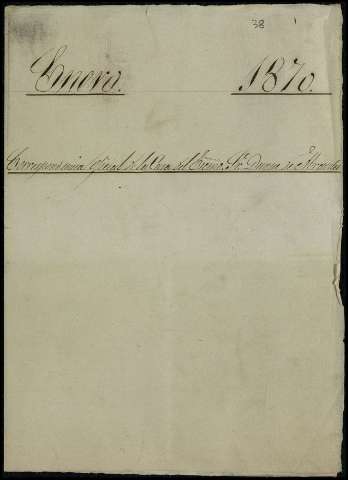 38 1
Enero. 1870.
Correspondencia oficial de la Casa del Excmo. Sr. Duque de Abrantes